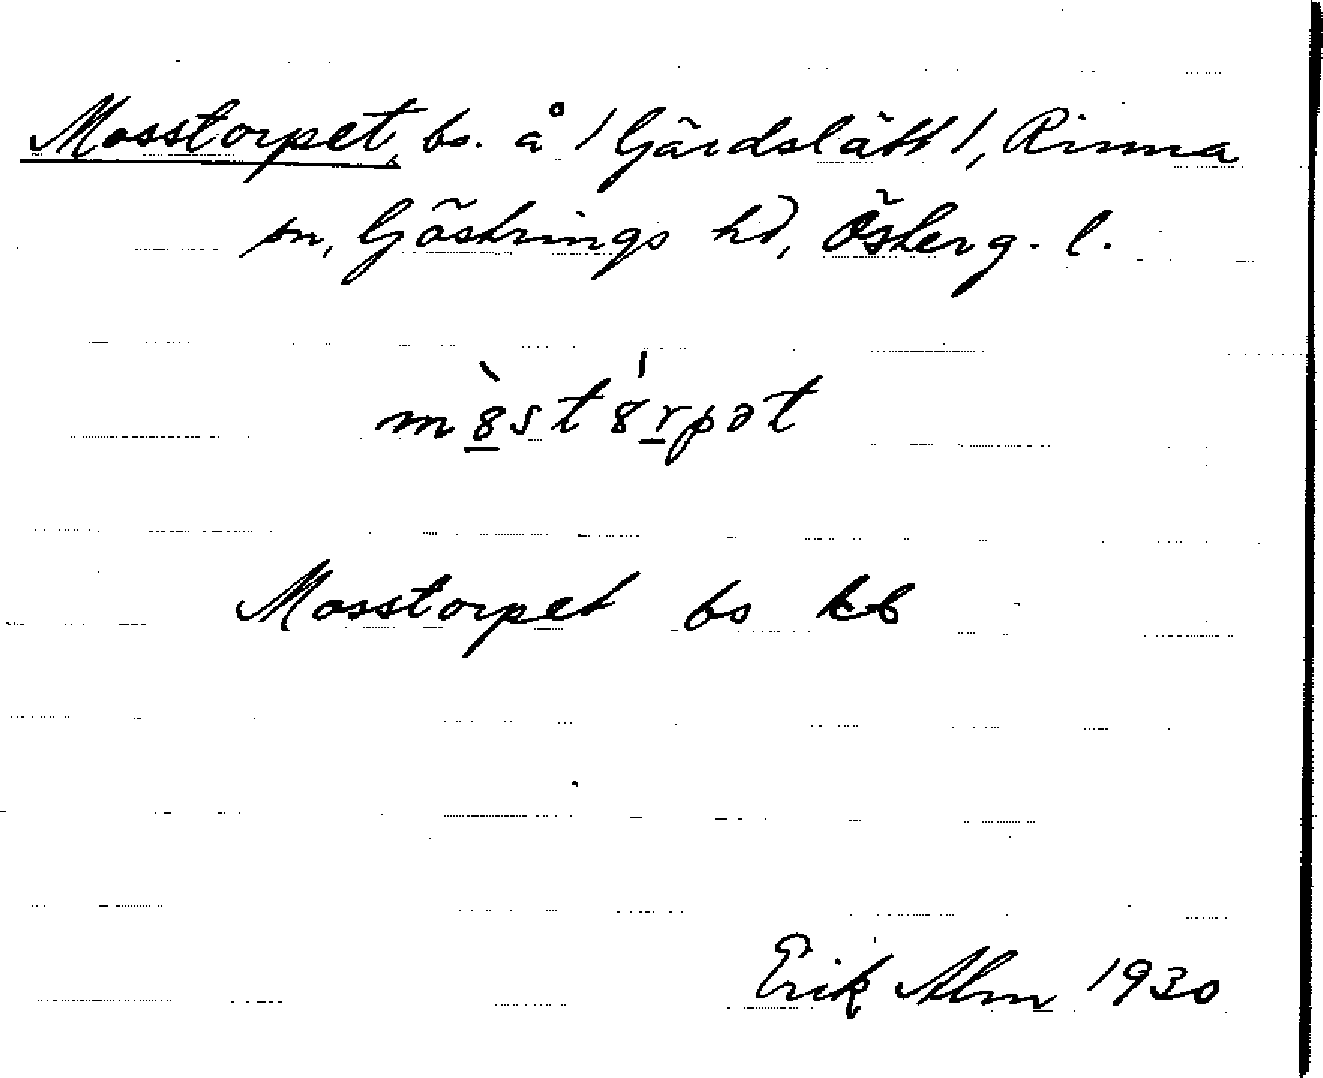 Mosstorpet, bs. å /Gärdslätt/, Rinna
sn, Göstrings hd, Österg. l.
m8̀st8́rpət
Mosstorpet bs kb
Erik Alm 1930